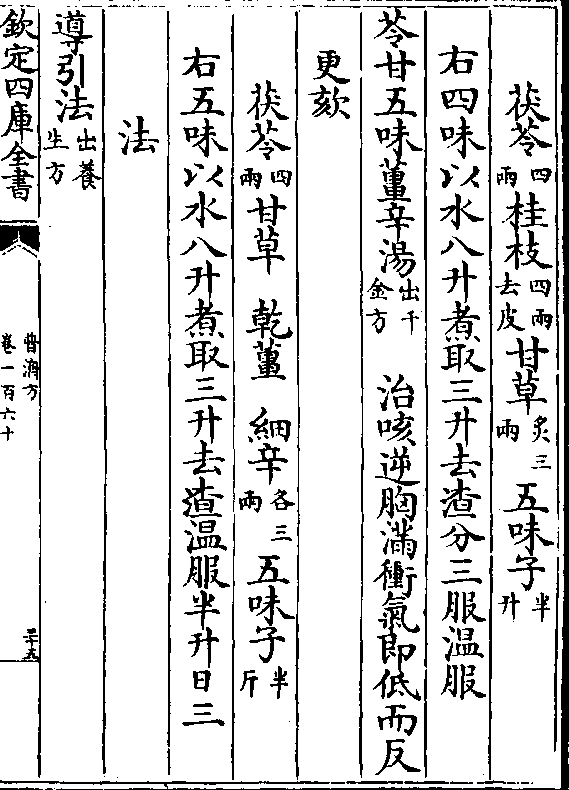 茯苓四兩桂枝四兩去皮甘草炙三兩五味子半升
右四味以水八升煮取三升去渣分三服温服
苓甘五味薑辛湯出千金方 治咳逆胸滿衝氣即低而反
更欬
茯苓四兩甘草 乾薑 細辛各三兩五味子半斤
右五味以水八升煮取三升去渣温服半升日三
法
導引法出養生方
欽定四庫全書
普濟方
卷一百六十
三十五